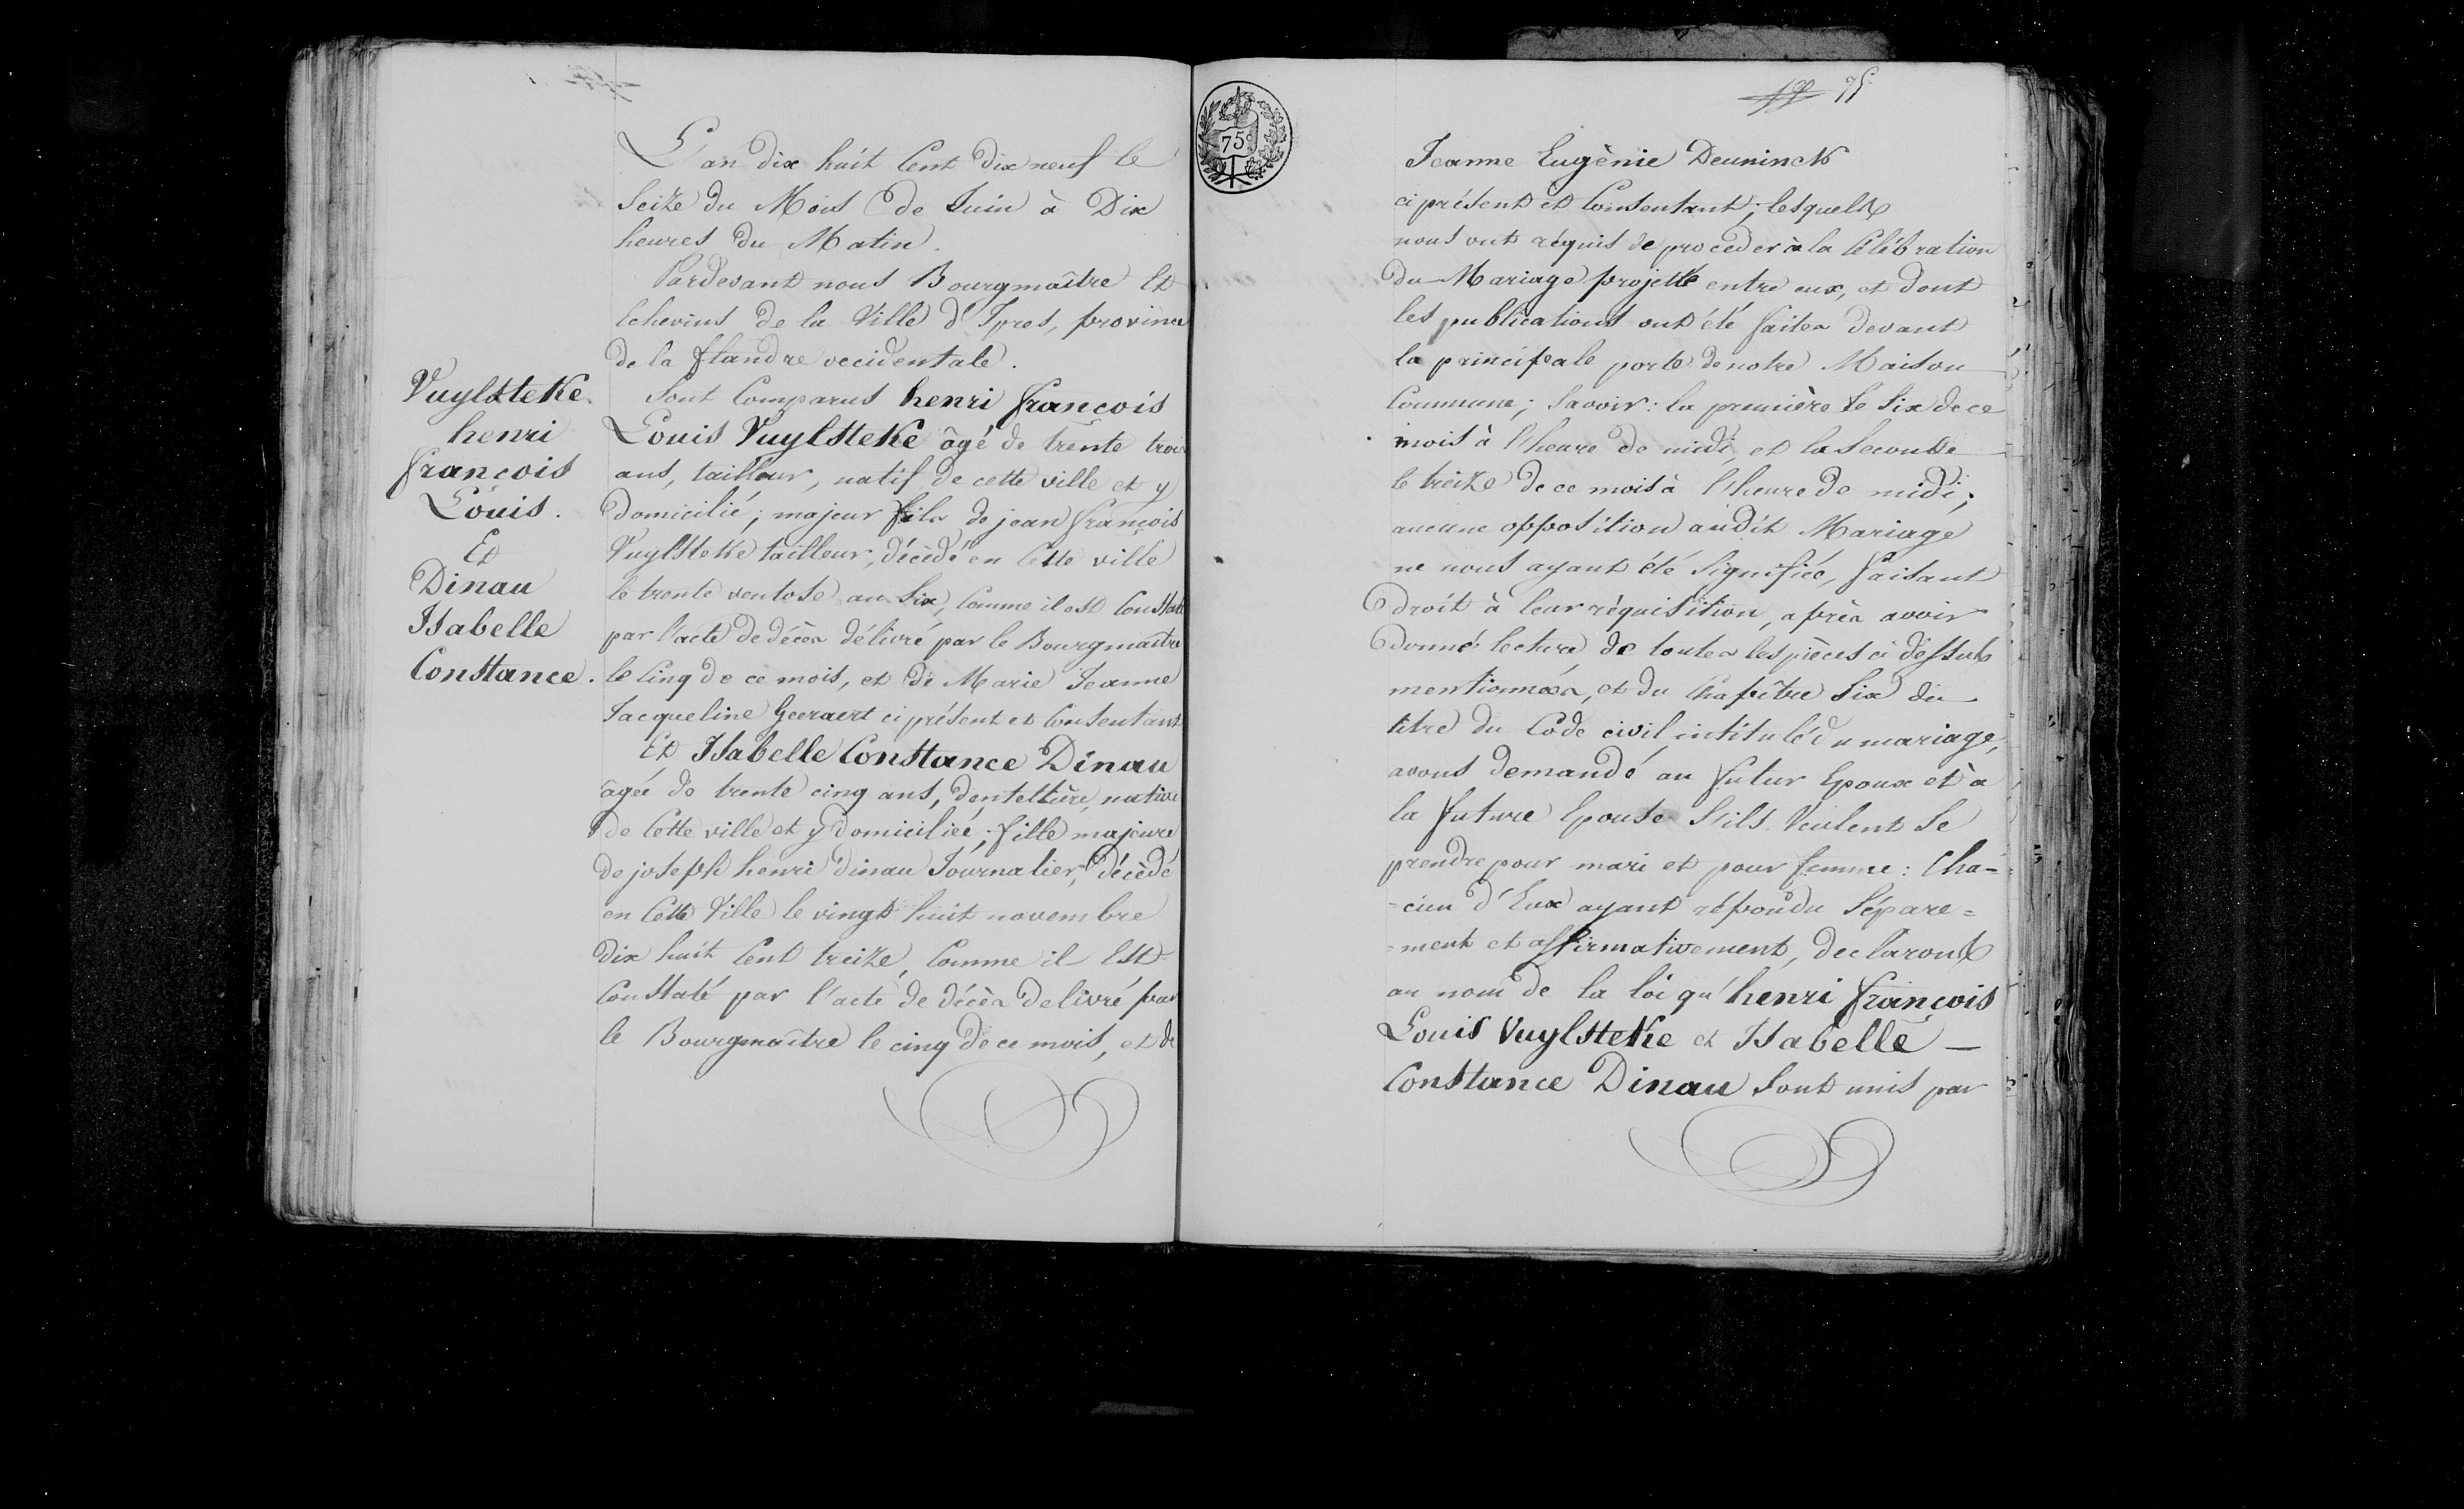 L'an dix huit Cent dix neuf le
Seize du Mois de Juin à Dix
heures du Matin.
Pardevant nous Bourgmaître Et
Echevins de la Ville d'Ipres, province
de la flandre occidentale.
Sont Comparus henri françois
Louis Vuylsteke âgé de trente trois
ans, tailleur, natif de cette ville et y
domicilié; majeur fils de jean françois
Vuylsteke tailleur, décédé en Cette ville
le trente ventose an Six, Comme il est Constaté
par l'acte de décès délivré par le Bourgmaître
le Cinq de ce mois, et de Marie Jeanne
Jacqueline Geeraert ci présent et Consentant
Et Isabelle Constance Dinau
âgée de trente cinq ans, dentellière, native
de Cette ville et y domiciliée; fille majeure
de joseph henri dinau Journalier, décédé
en Cette Ville le vingt huit novembre
dix huit Cent treize, Comme il Est
Constaté par l'acte de décès delivré par
le Bourgmaître le cinq de ce mois, et de
Vuylsteke.
henri
françois
Louis.
Et
Dinau
Isabelle
Constance.
75c
95
Jeanne Eugènie Deuninck
ci présent et Consentant; lesquels
nous ont réquis de proceder à la Célébration
du Mariage projetté entre eux, et dont
les publications ont été faites devant
la principale porte de notre Maison
Commune; Savoir: la première le Six de ce
mois à l'heure de midi, et la Seconde
le treize de ce mois à l'heure de midi;
aucune opposition audit Mariage
ne nous ayant été Signifiée, faisant
droit à leur réquisition, après avoir
donné lecture de toutes les pièces ci dessus
mentionnées, et du Chapitre Six du
titre du Code civil intitulé du mariage,
avons demandé au futur Epoux et à
la future Epouse S'ils Veulent Se
prendre pour mari et pour femme: Cha-
-cun d'Eux ayant répondu Sépare=
=ment et affirmativement, declarons
au nom de la loi qu'henri françois
Louis Vuylsteke et Isabelle —
Constance Dinau Sont unis par